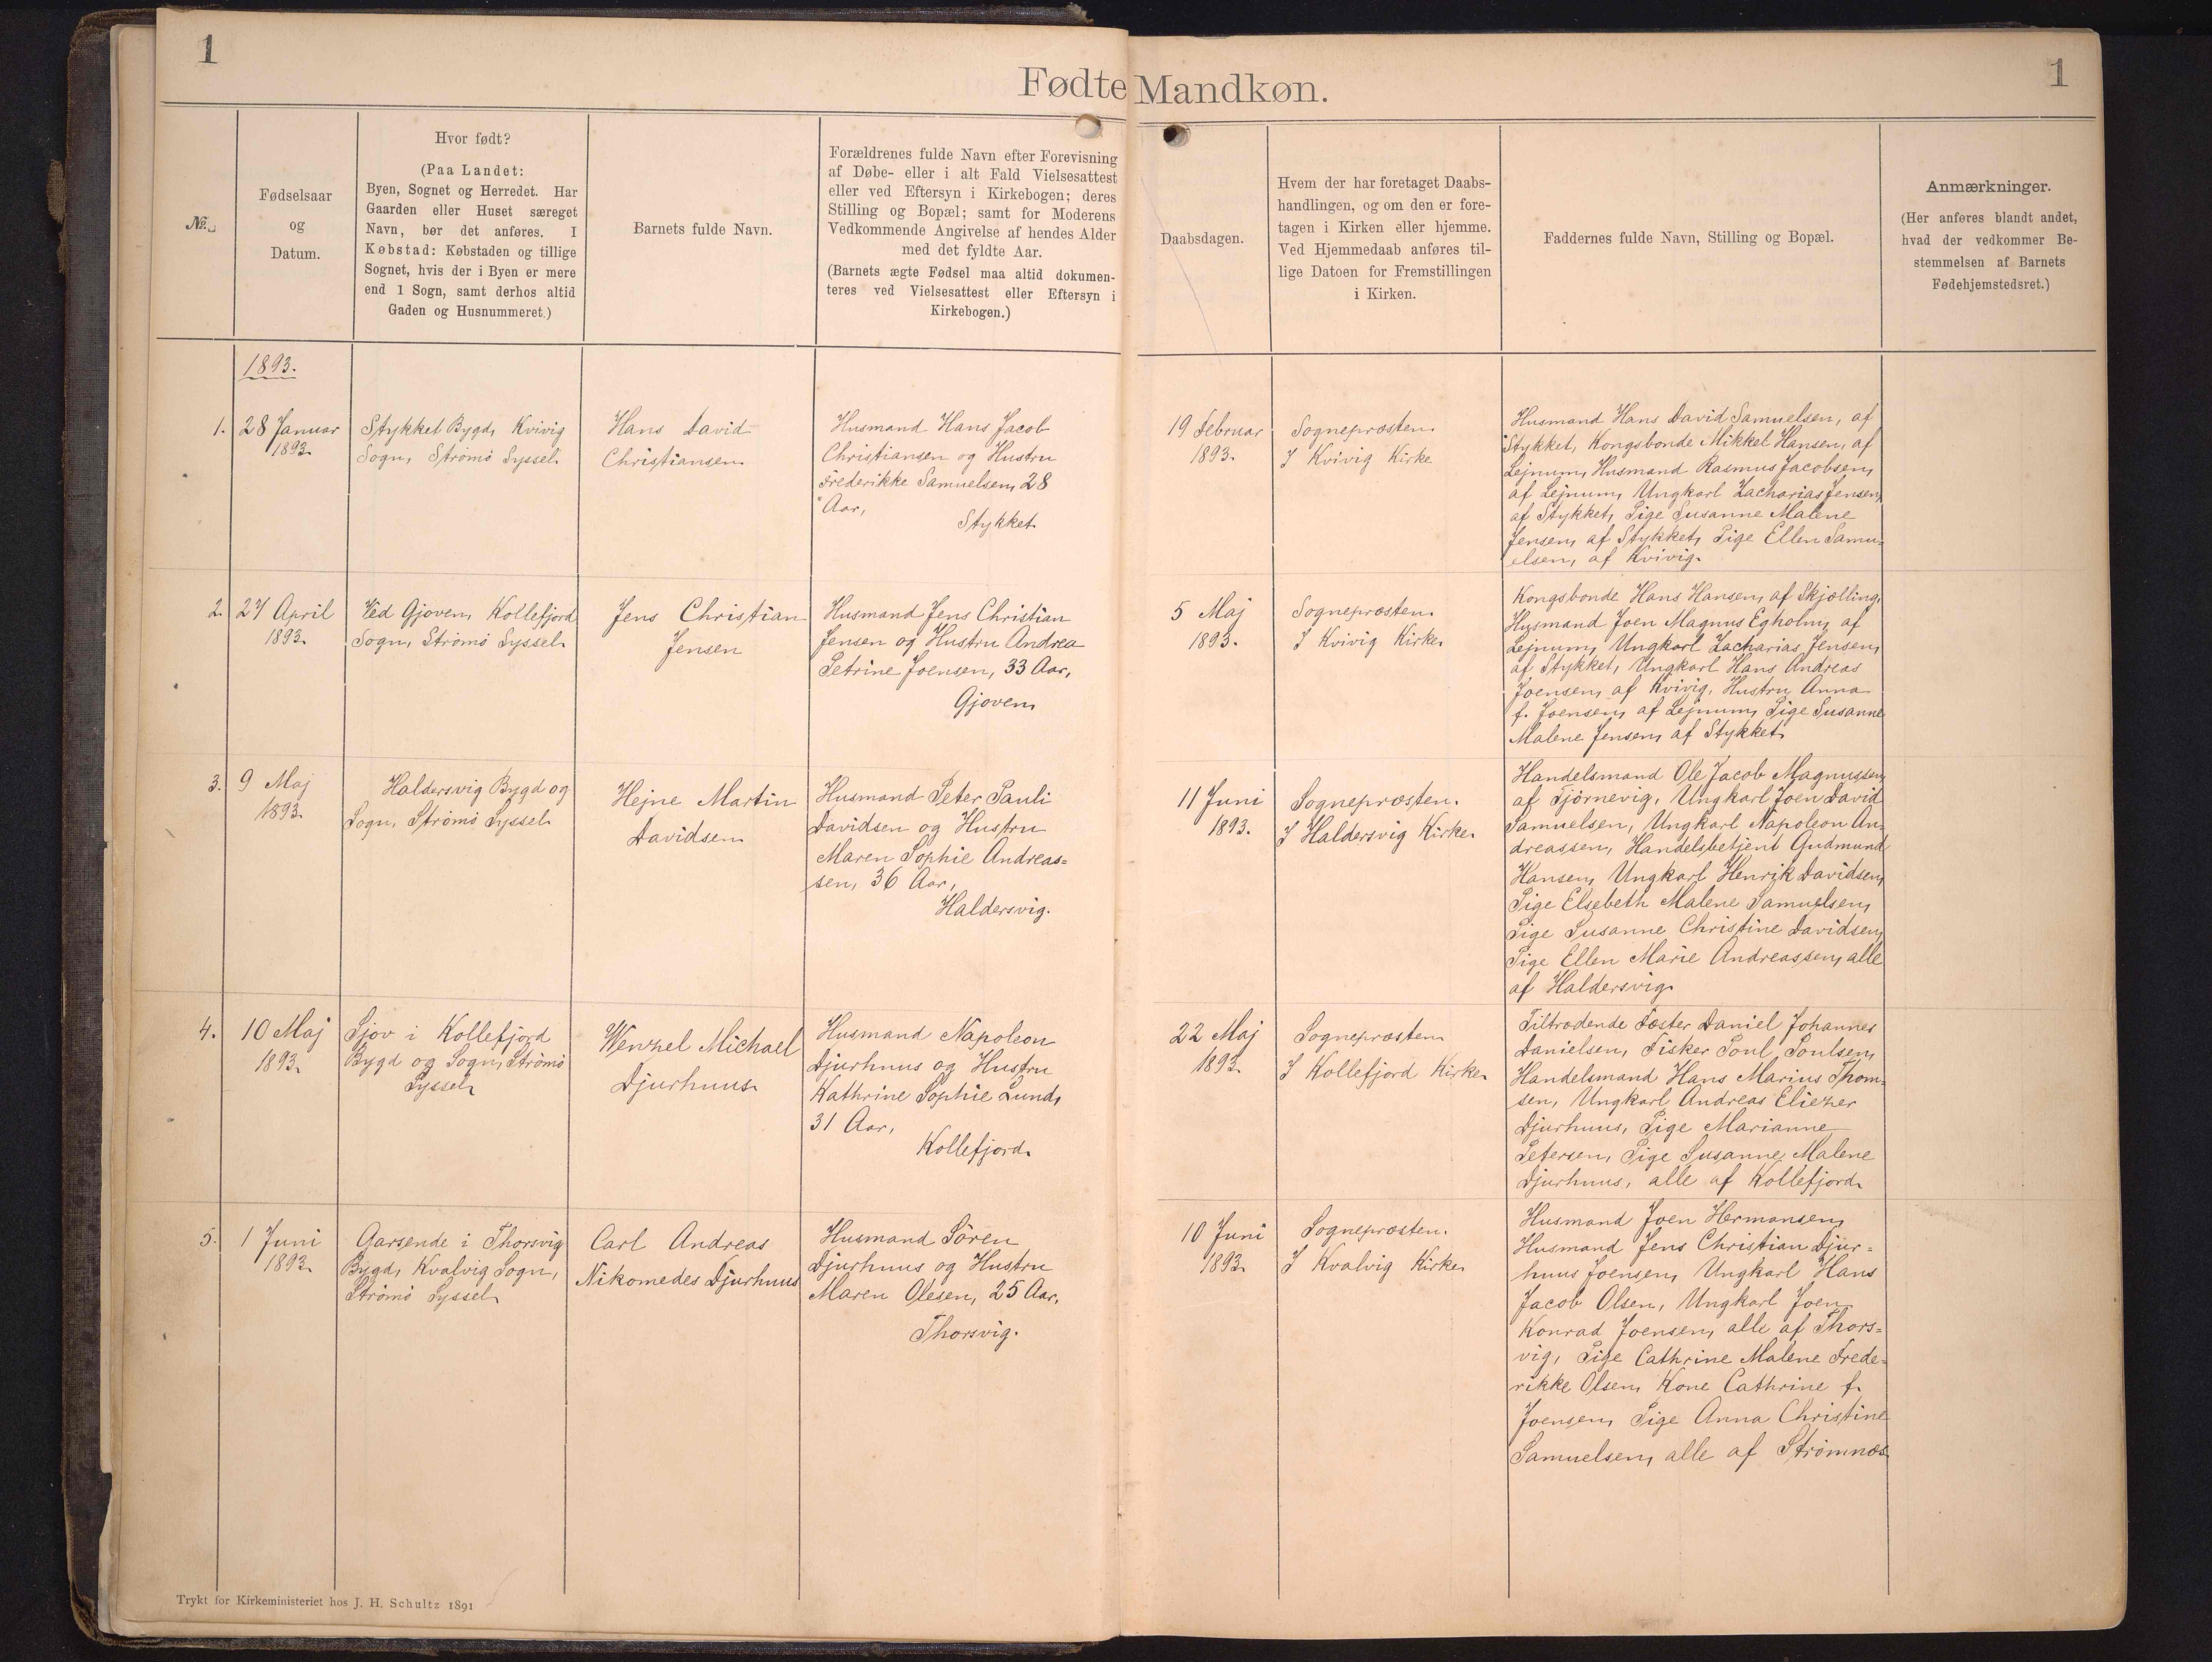 1
1
Fødte Mandkøn.
№
Fødselsaar
og
Datum.
Hvor født?
(Paa Landet:
Byen, Sognet og Herredet. Har
Gaarden eller Huset særeget
Navn, bør det anføres. I
Købstad: Købstaden og tillige
Sognet, hvis der i Byen er mere
end 1 Sogn, samt derhos altid
Gaden og Husnummeret.)
Barnets fulde Navn.
Forældrenes fulde Navn efter Forevisning
af Døbe- eller i alt Fald Vielsesattest
eller ved Eftersyn i Kirkebogen; deres
Stilling og Bopæl; samt for Moderens
Vedkommende Angivelse af hendes Alder
med det fyldte Aar.
(Barnets ægte Fødsel maa altid dokumen-
teres ved Vielsesattest eller Eftersyn i
Kirkebogen.)
Daabsdagen.
Hvem der har foretaget Daabs-
handlingen, og om den er fore-
tagen i Kirken eller hjemme.
Ved Hjemmedaab anføres til-
lige Datoen for Fremstillingen
i Kirken.
Faddernes fulde Navn, Stilling og Bopæl.
Anmærkninger.
(Her anføres blandt andet,
hvad der vedkommer Be-
stemmelsen af Barnets
Fødehjemstedsret.)
1893.
1.
28 Januar
1893.
Stykket Bygd, Kvivig
Sogn, Strömö Syssel.
Hans David
Christiansen
Husmand Hans Jacob
Christiansen og Hustru
Frederikke Samuelsen, 28
Aar,
Stykket.
19 Februar
1893.
Sognepræsten.
I Kvivig Kirke
Husmand Hans David Samuelsen, af
Stykket, Kongsbonde Mikkel Hansen, af
Lejnum, Husmand Rasmus Jacobsen,
af Lejnum, Ungkarl Zacharias Jensen,
af Stykket, Pige Susanne Malene
Jensen, af Stykket, Pige Ellen Samu-
elsen, af Kvivig.
2.
27 April
1893.
Ved Gjoven, Kollefjord
Sogn, Strömö Syssel.
Jens Christian
Jensen
Husmand Jens Christian
Jensen og Hustru Andrea
Petrine Joensen, 33 Aar,
Gjoven.
5 Maj
1893.
Sognepræsten.
I Kvivig Kirke.
Kongsbonde Hans Hansen, af Skjælling,
Husmand Joen Magnus Egholm, af
Lejnum, Ungkarl Zacharias Jensen,
af Stykket, Ungkarl Hans Andreas
Joensen, af Kvivig, Hustru Anna
f. Joensen, af Lejnum, Pige Susanne
Malene Jensen, af Stykket.
3.
9 Maj
1893.
Haldersvig Bygd og
Sogn, Strömö Syssel.
Hejne Martin
Davidsen.
Husmand Peter Pauli
Davidsen og Hustru
Maren Sophie Andreas=
sen, 36 Aar,
Haldersvig.
11 Juni
1893.
Sognepræsten.
I Haldersvig Kirke.
Handelsmand Ole Jacob Magnussen
af Tjörnevig, Ungkarl Joen David
Samuelsen, Ungkarl Napoleon An-
dreassen, Handelsbetjent Gudmund
Hansen, Ungkarl Henrik Davidsen,
Pige Elsebeth Malene Samuelsen,
Pige Susanne Christine Davidsen,
Pige Ellen Marie Andreassen, alle
af Haldersvig.
4.
10 Maj
1893.
Sjov i Kollefjord
Bygd og Sogn, Strömö
Syssel.
Wenzel Michael
Djurhuus.
Husmand Napoleon
Djurhuus og Hustru
Kathrine Sophie Lund,
31 Aar,
Kollefjord.
22 Maj
1893.
Sognepræsten
I Kollefjord Kirke.
Tiltrædende Fæster Daniel Johannes
Danielsen, Fisker Poul Poulsen,
Handelsmand Hans Marius Thom-
sen, Ungkarl Andreas Eliezer
Djurhuus, Pige Marianne
Petersen, Pige Susanne Malene
Djurhuus, alle af Kollefjord.
5.
1 Juni
1893.
Garsende i Thorsvig
Bygd, Kvalvig Sogn,
Strömö Syssel.
Carl Andreas
Nikomedes Djurhuus
Husmand Sören
Djurhuus og Hustru
Maren Olesen, 25 Aar,
Thorsvig.
10 Juni
1893.
Sognepræsten.
I Kvalvig Kirke.
Husmand Joen Hermansen,
Husmand Jens Christian Djur=
huus Joensen, Ungkarl Hans
Jacob Olsen, Ungkarl Joen
Konrad Joensen, alle af Thors=
vig, Pige Cathrine Malene Frede=
rikke Olsen, Kone Cathrine f.
Joensen, Pige Anna Christine
Samuelsen, alle af Strömnæs
Trykt for Kirkeministeriet hos J. H. Schultz 1891